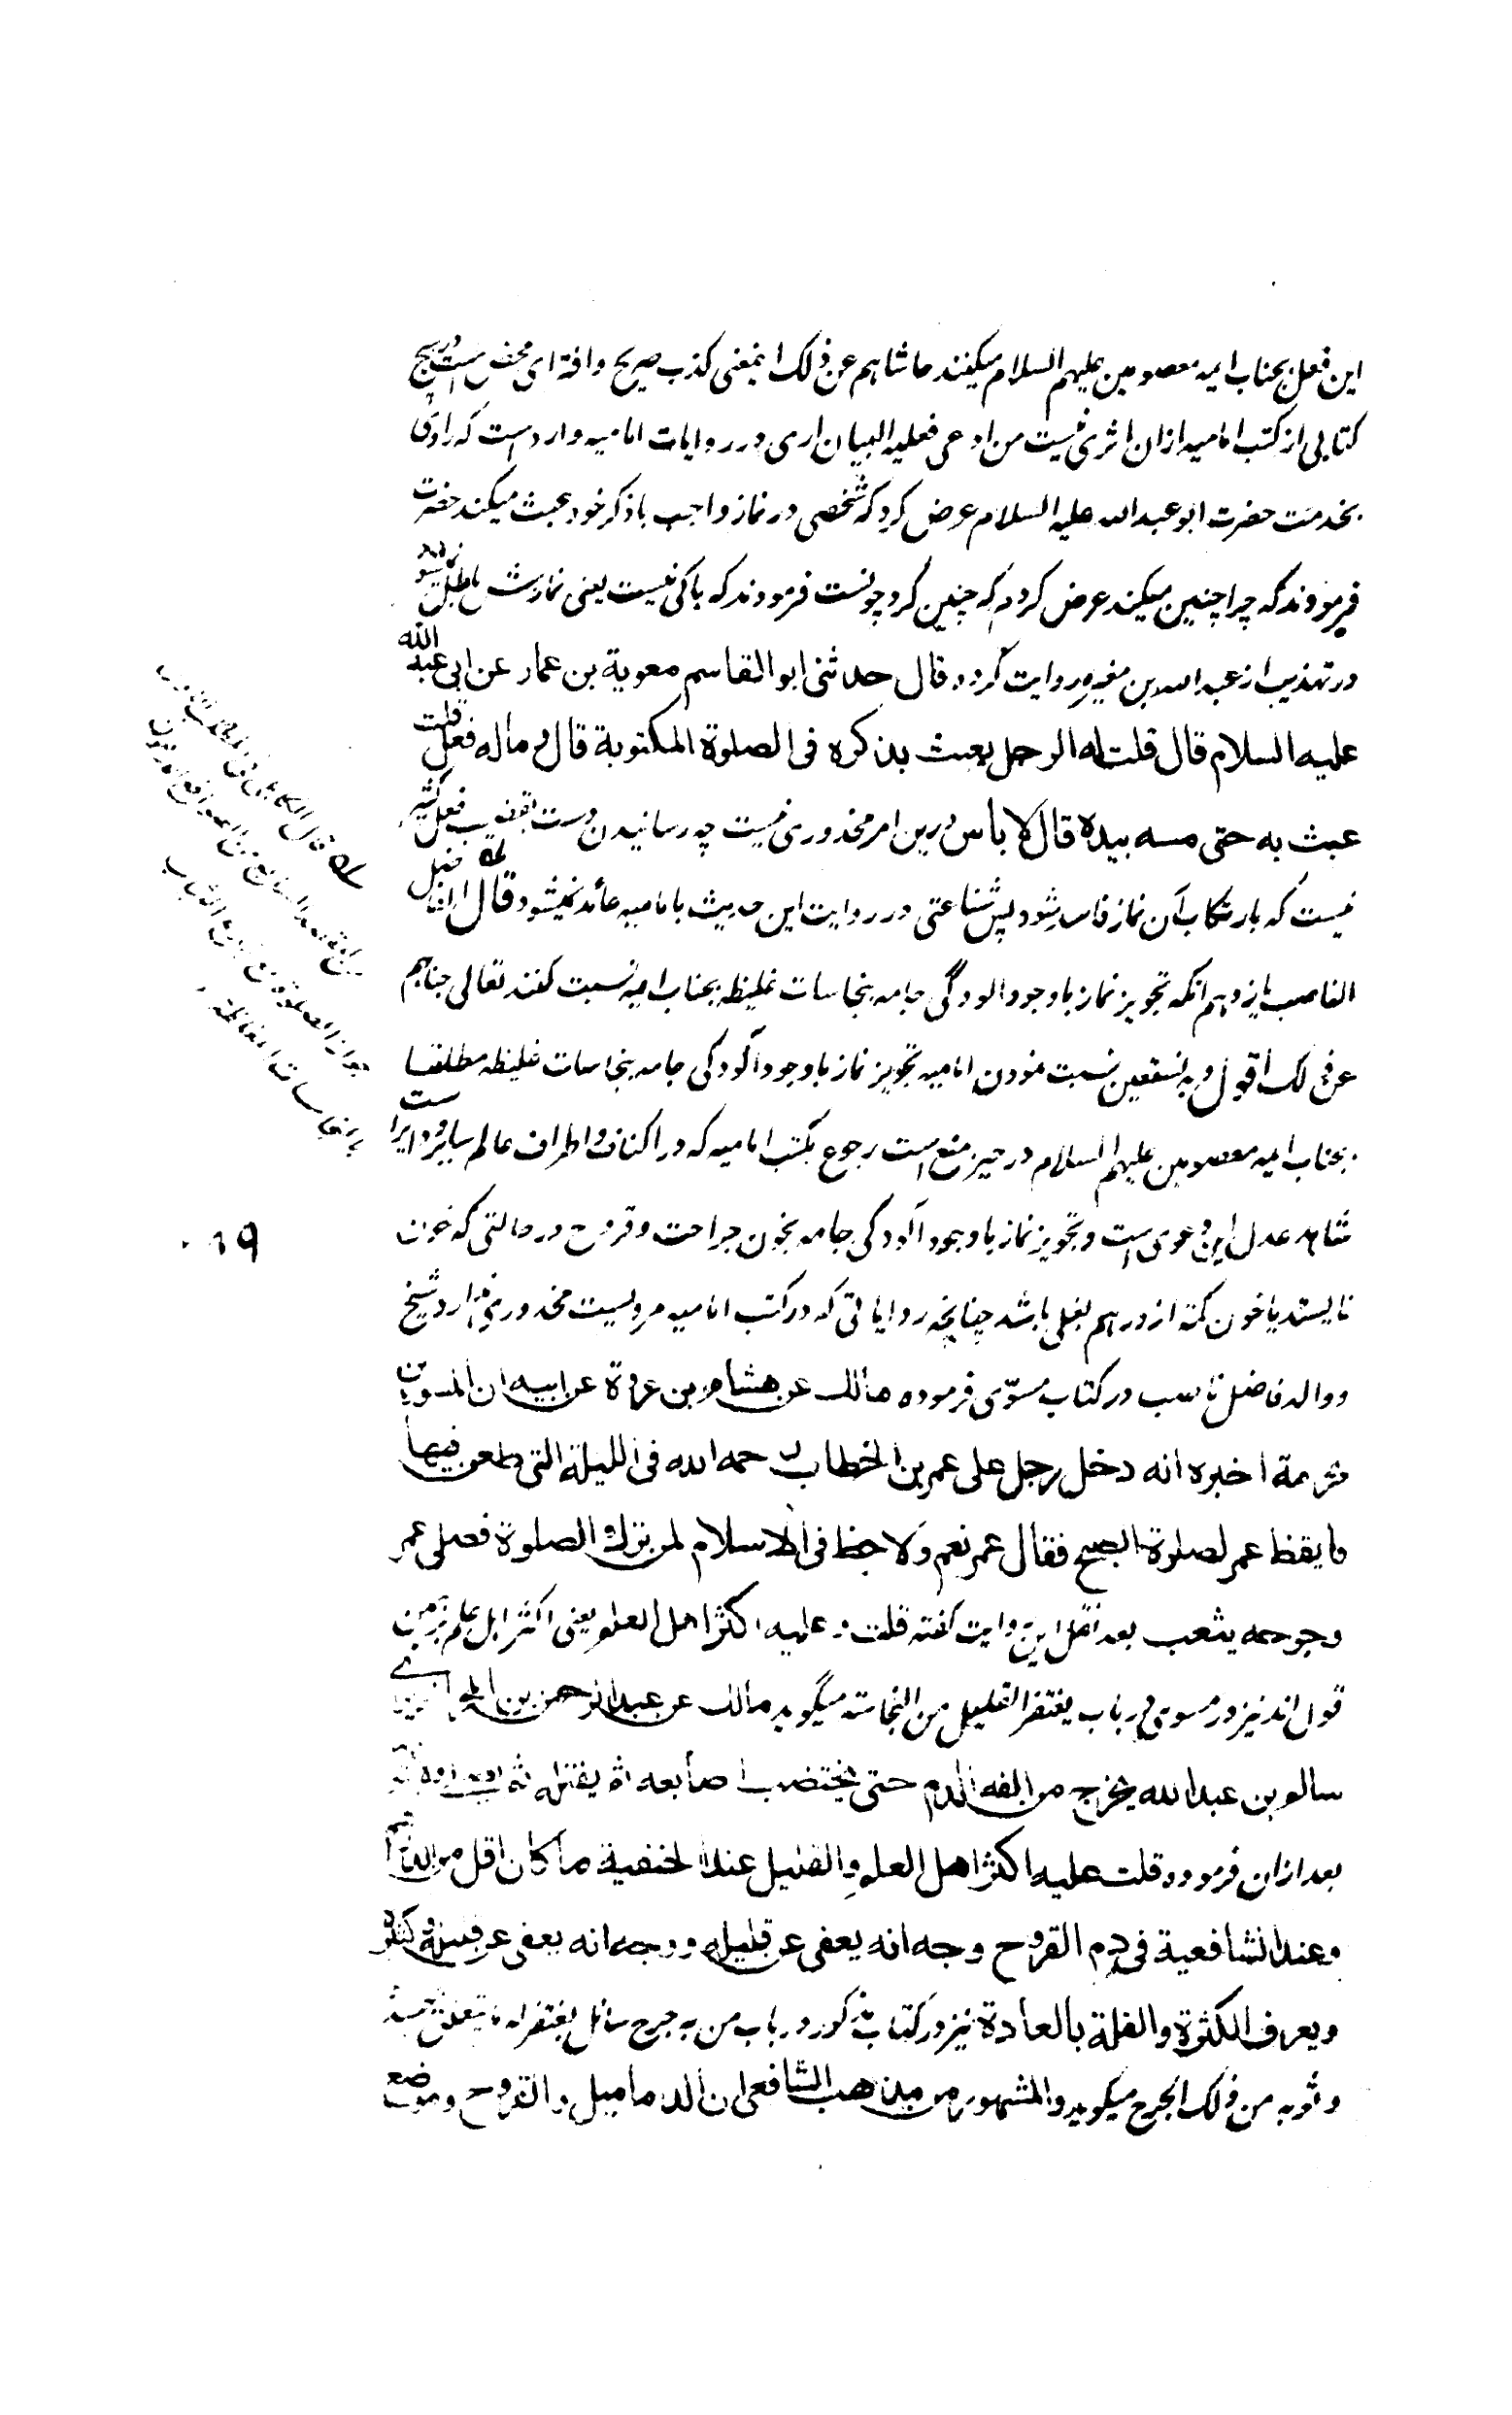 این فعل بجناب ایمه معصومین علیهم السلام میکنند حاشا هم عن ذلک اینمعنی کذب صریح و افترای محض است در هیچ
کتابی از کتب امامیه ازان اثری نیست من ادعی فعلیه البیان اری در روایات امامیه وارد است که راوی
بخدمت حضرت ابو عبد الله علیه السلام عرض کرد که شخصی در نماز واجب با ذکر خود عبث میکند حضرت
فرمودند که چرا چنین میکند عرض کردم که چنین کرد فرمودند که باکی نیست یعنی نمازش باطل نمیشود
در تهذیب از عبد الله بن مغیره روایت کرده قال حدثنی ابو القاسم معویة بن عمار عن ابی عبد الله
علیه السلام قال قلت له الرجل یعبث بذکره فی الصلوة المکتوبة قال و ماله فعل قلت
عبث به حتی مسه بیده قال لا باس درین امر محذوری نیست چه رسانیدن دست بقضیب فعل کثیر
نیست که بارتکاب آن نماز فاسد شود پس شناعتی در روایت این حدیث بامامیه عائد نمیشود قال الفاضل
الناصب یازدهم آنکه تجویز نماز با وجود الودگی جامه بنجاسات غلیظه بجناب ایمه نسبت کنند تعالی جنابهم
عن ذلک اقول و به نستعین نسبت نمودن امامیه تجویز نماز با وجود آلودگی جامه بنجاسات غلیظه مطلقا
بجناب ایمه معصومین علیهم السلام در حیز منع است رجوع بکتب امامیه که در اکناف و اطراف عالم سایر و دایر است
شاهد عدل این دعوی است و تجویز نماز با وجود آلودگی جامه بخون جراحت و قروح در حالتی که خون
نایستد یا خون کمتر از درهم بغلی باشد چنانچه روایاتی که در کتب امامیه مرویست محذوری ندارد شیخ
و والد فاضل ناصب در کتاب مسوّی فرموده مالک عن هشام بن عروة عن ابیه ان المسور بن
مخرمة اخبره انه دخل رجل علی عمر بن الخطاب رحمه الله فی اللیلة التی طعن فیها
فایقظ عمر لصلوة الصبح فقال عمر نعم ولا حظ فی الاسلام لمن ترک الصلوة فصلی عمر
وجرحه یثعب بعد نقل این روایت گفته قلت و علیه اکثر اهل العلم یعنی اکثر اهل علم بر همین
قول اند نیز در مسوی در باب یغتفر القلیل من النجاسة میگوید مالک عن عبد الرحمن بن المجبر انه رای
سالم بن عبد الله یخرج من انفه الدم حتی یختضب اصابعه ثم یفتله ثم
بعد ازان فرموده قلت علیه اکثر اهل العلم والقلیل عند الحنفیة ما کان اقل من الدرهم
وعند الشافعیة فی دم القروح وجه انه یعفی عن قلیله ووجه انه یعفی عن قلیله وکثیره
ویعرف الکثرة والقلة بالعادة نیز در کتاب مذکور در باب من به جرح سائل یغتفر له ما یتعلق بجسده
وثوبه من ذلک الجرح میگوید والمشهور من مذهب الشافعی ان الدمامیل والقروح وموضع
قال الکابلی فی
جواز الصلوة
بالنجاسات الغلیظة